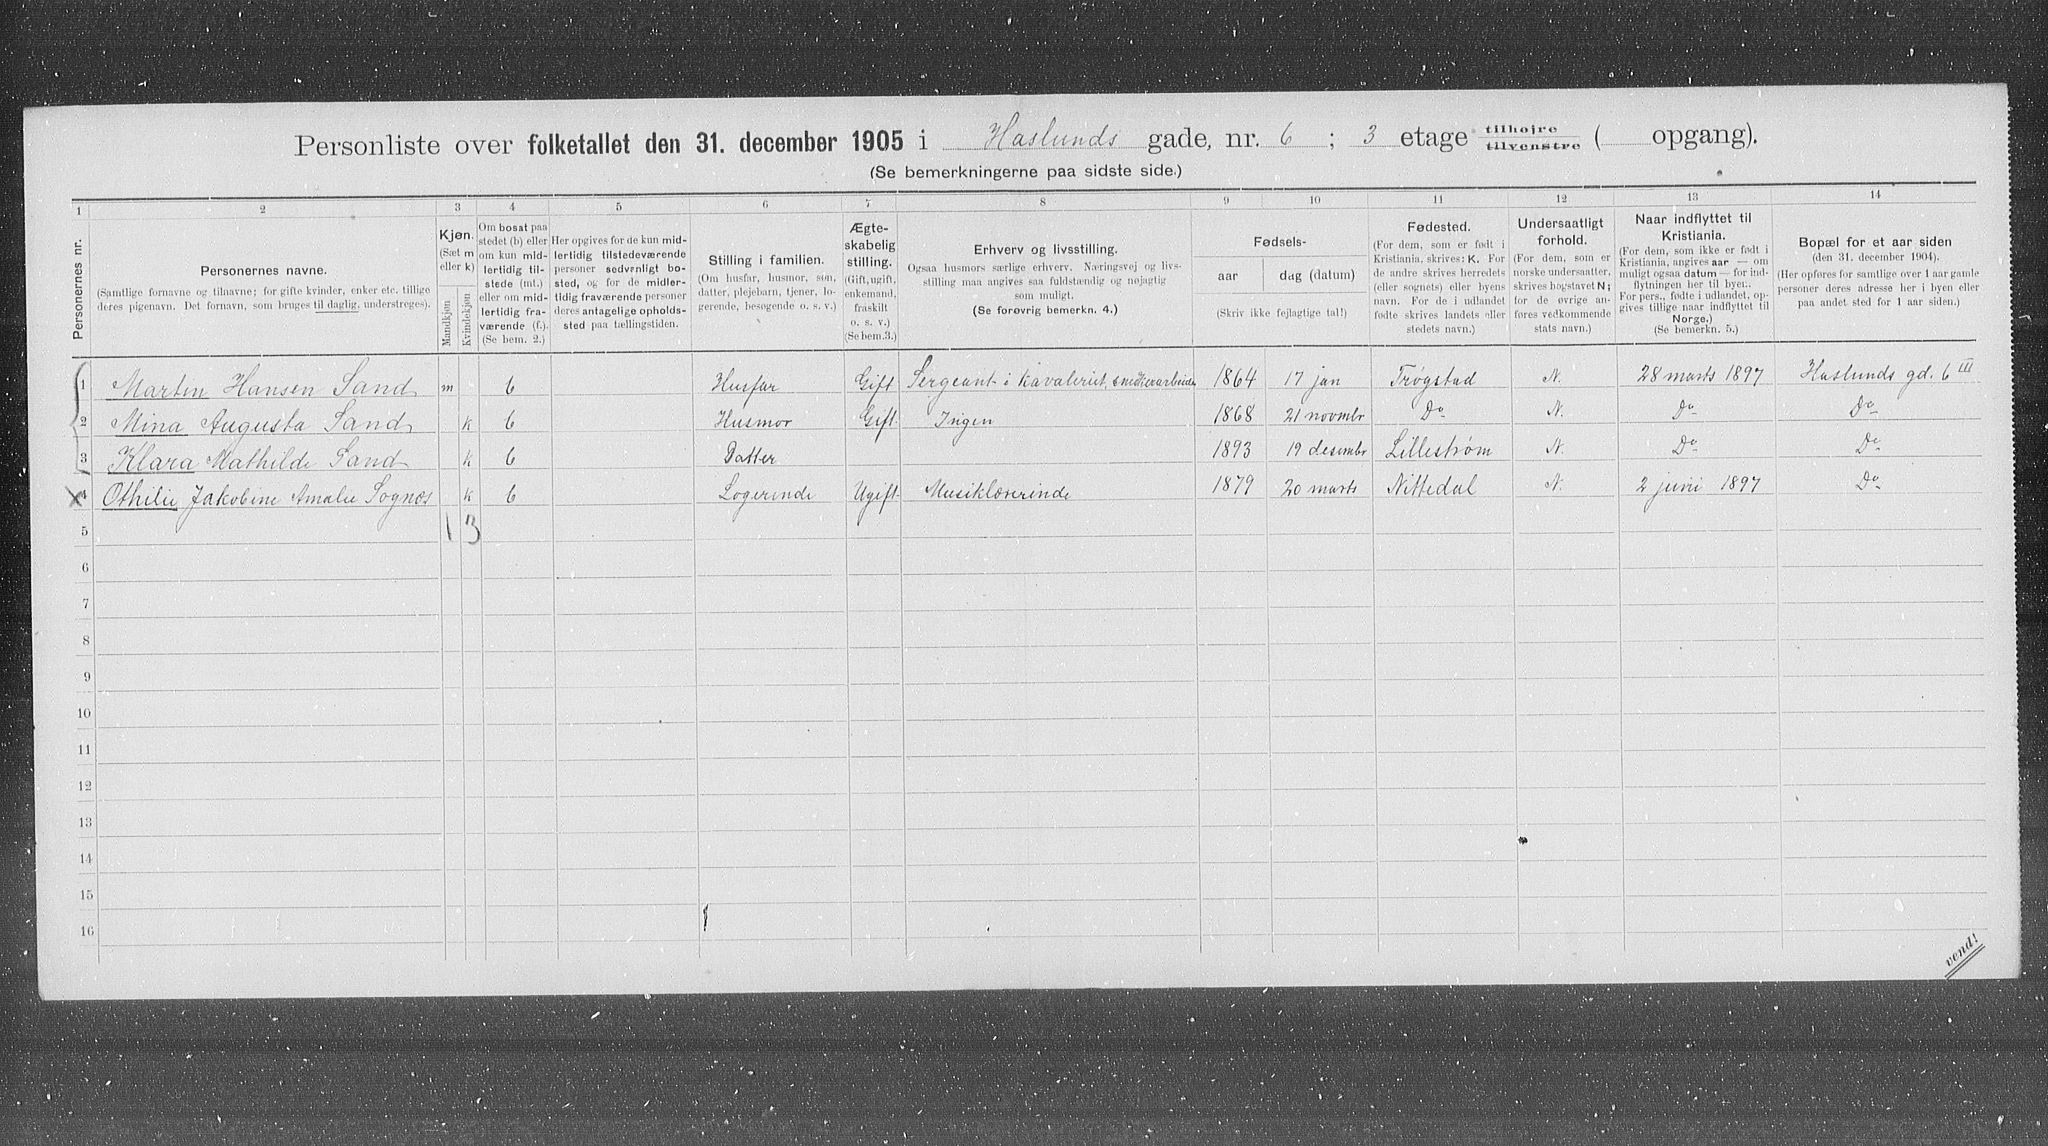 Personliste over folketallet den 31. december 1905 i Haslunds gade, nr. 6 ; 3 etage tilhøjre tilvenstre ( opgang).
(Se bemerkningerne paa sidste side.)
1 2 3 4 5 6 7 8 9 10 11 12 13 14
Personernes nr.
Personernes navne.
(Samtlige fornavne og tilnavne; for gifte kvinder, enker etc. tillige
deres pigenavn. Det fornavn, som bruges til daglig, understreges).
Kjøn.
(Sæt m
eller k)
Mandkjøn
Kvindekjøn
Om bosat paa
stedet (b) eller
om kun mid-
lertidig til-
stede (mt.)
eller om mid-
lertidig fra-
værende (f.).
(Se bem. 2.)
Her opgives for de kun mid-
lertidig tilstedeværende
personer sedvanligt bo-
sted, og for de midler-
tidig fraværende personer
deres antagelige opholds-
sted paa tællingstiden.
Stilling i familien.
(Om husfar, husmor, søn,
datter, plejebarn, tjener, lo-
gerende, besøgende o. s. v.)
Ægte-
skabelig
stilling.
(Gift, ugift,
enkemand,
fraskilt
o. s. v.)
(Se bem.3.)
Erhverv og livsstilling.
Ogsaa husmors særlige erhverv. Næringsvej og livs-
stilling maa angives saa fuldstændig og nøjagtig
som muligt.
(Se forøvrig bemerkn. 4.)
Fødsels-
aar dag (datum)
(Skriv ikke fejlagtige tal!)
Fødested.
(For dem, som er født i
Kristiania, skrives: K. For
de andre skrives herredets
(eller sognets) eller byens
navn. For de i udlandet
fødte skrives landets eller
stedets navn.)
Undersaatligt
forhold.
(For dem, som er
norske undersaatter,
skrives bogstavet N;
for de øvrige an-
føres vedkommende
stats navn.)
Naar indflyttet til
Kristiania.
(For dem, som ikke er født i
Kristiania, angives aar — om
muligt ogsaa datum — for ind-
flytningen her til byen.
For pers., fødte i udlandet, op-
gives tillige naar indflyttet til
Norge.)
(Se bemerkn. 5.)
Bopæl for et aar siden
(den 31. december 1904).
(Her opføres for samtlige over 1 aar gamle
personer deres adresse her i byen eller
paa andet sted for 1 aar siden.)
1 Martin Hansen Sand m b Husfar Gift Sergeant i kavaleriet, smedkerarbeider 1864 17 jan Trøgstad N. 28 marts 1897 Haslunds gd. 6 III
2 Mina Augusta Sand k b Husmor Gift Ingen 1868 21 novmbr Do N. Do Do
3 Klara Mathilde Sand k b Datter 1893 19 desembr Lillestrøm N. Do Do
4 Othilie Jakobine Amalie Sognæs k b Logerende Ugift Musiklærerinde 1879 20 marts Nittedal N. 2 juni 1897 Do
5 1 3
6
7
8
9
10
11
12
13
14
15
16
vend!